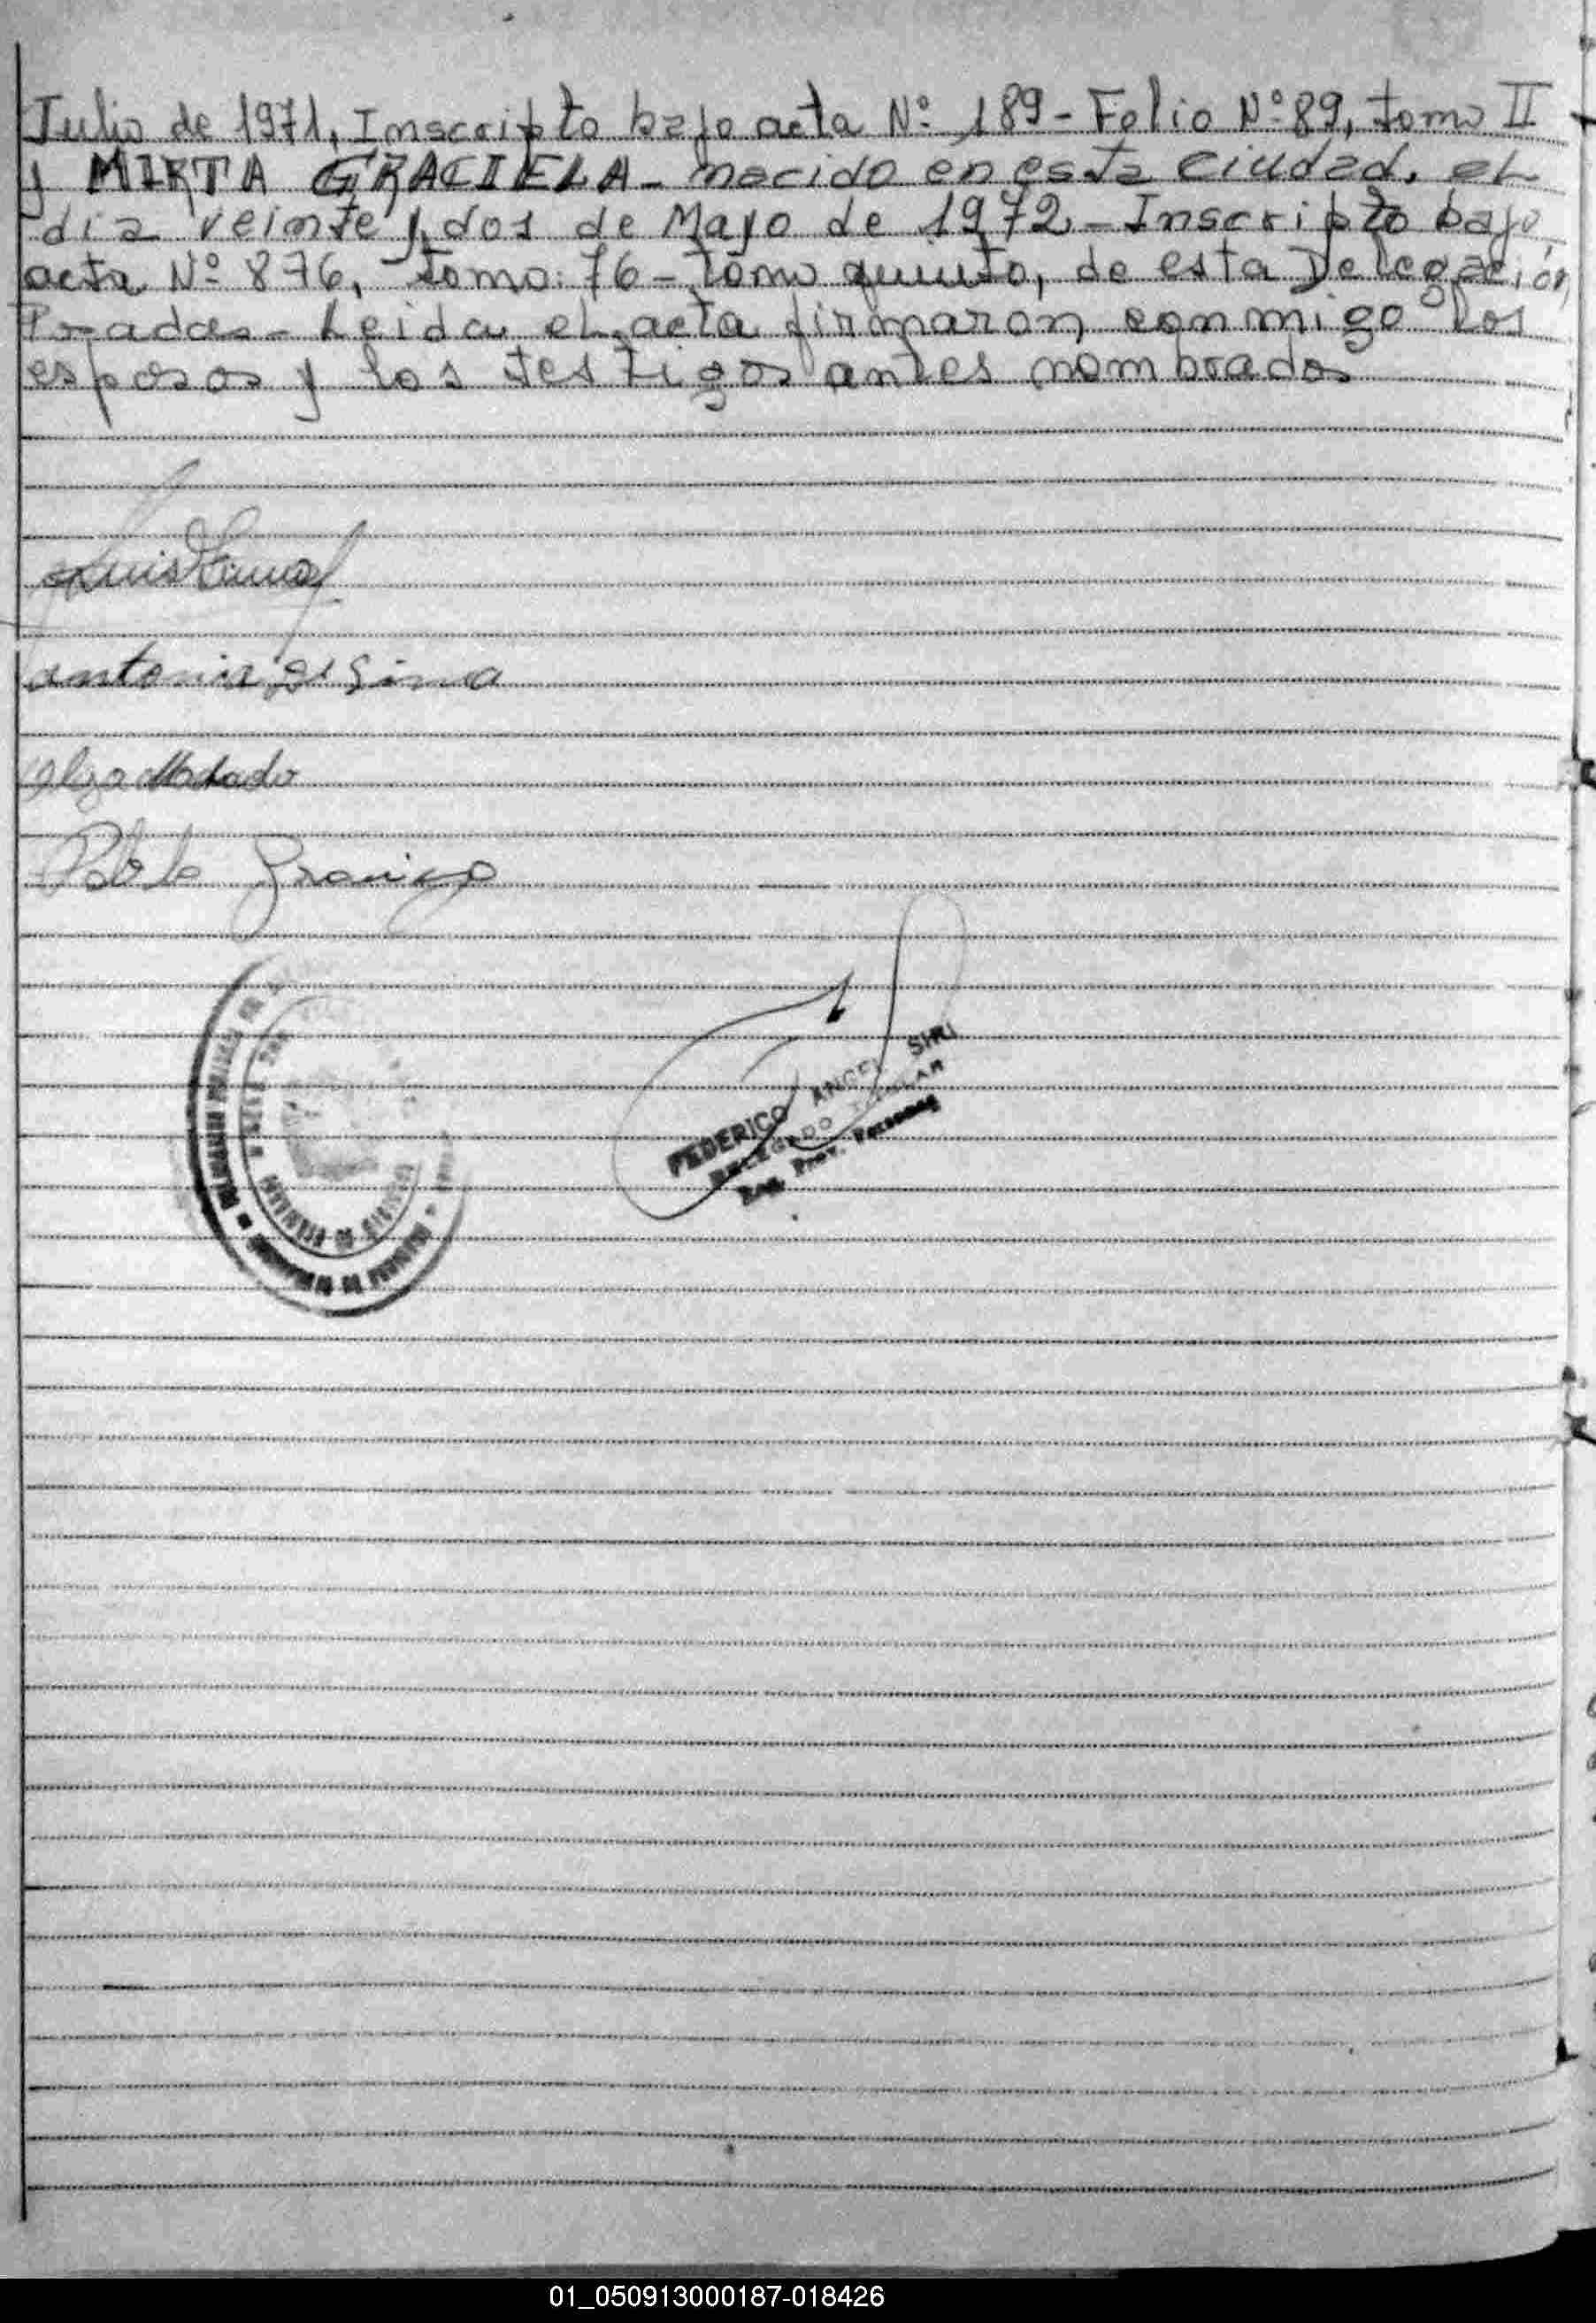 Julio de 1971, Inscripto bajo acta Nº 189 - Folio Nº 89, tomo II
y MIRTA GRACIELA - nacido en esta ciudad, el
dia veinte y dos de Mayo de 1972 - Inscripto bajo
acta Nº 876, tomo: 76 - tomo quinto, de esta Delegación
Posadas - Leida el acta firmaron conmigo los
esposos y los testigos antes nombrados
Luis
antonia
Olga Machado
Pablo
FEDERICO ANGEL SIRI
DELEGADO TITULAR
Reg. Prov. Personas
01_050913000187-018426